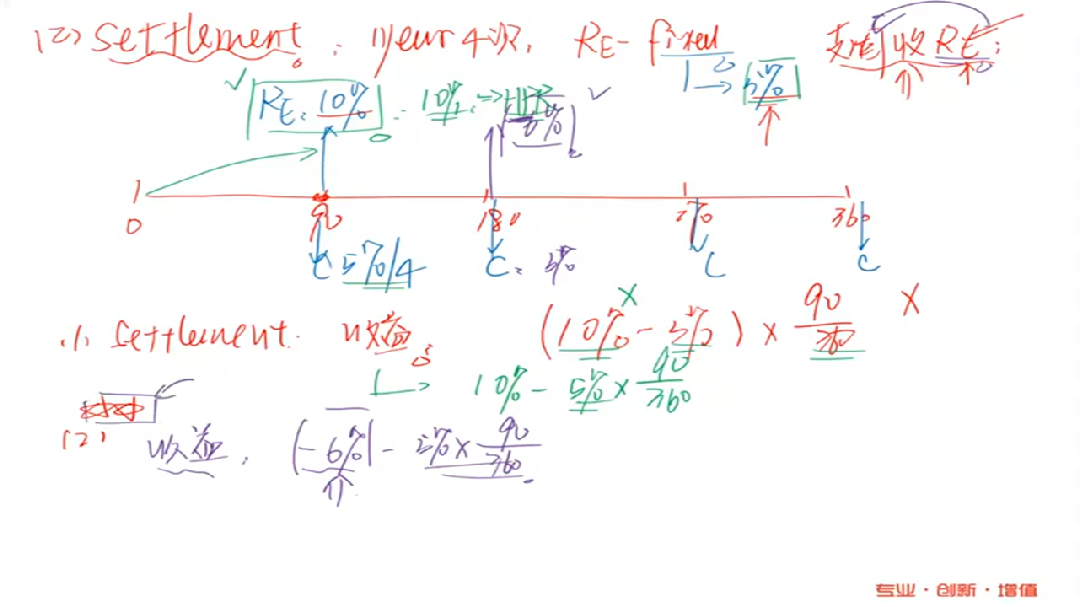 (2) Settlement : 1year 4次, RE-fixed 支固 收RE;
RE: 10% : 10% => -6% → 5%
0 90 180 270 360
C 5%/4 C: 5% C C
(1) Settlement 收益 (10% - 5%) × 90/360 ×
→ 10% - 5% × 90/360
(2) 收益, (-6%) - 5% × 90/360
专业·创新·增值